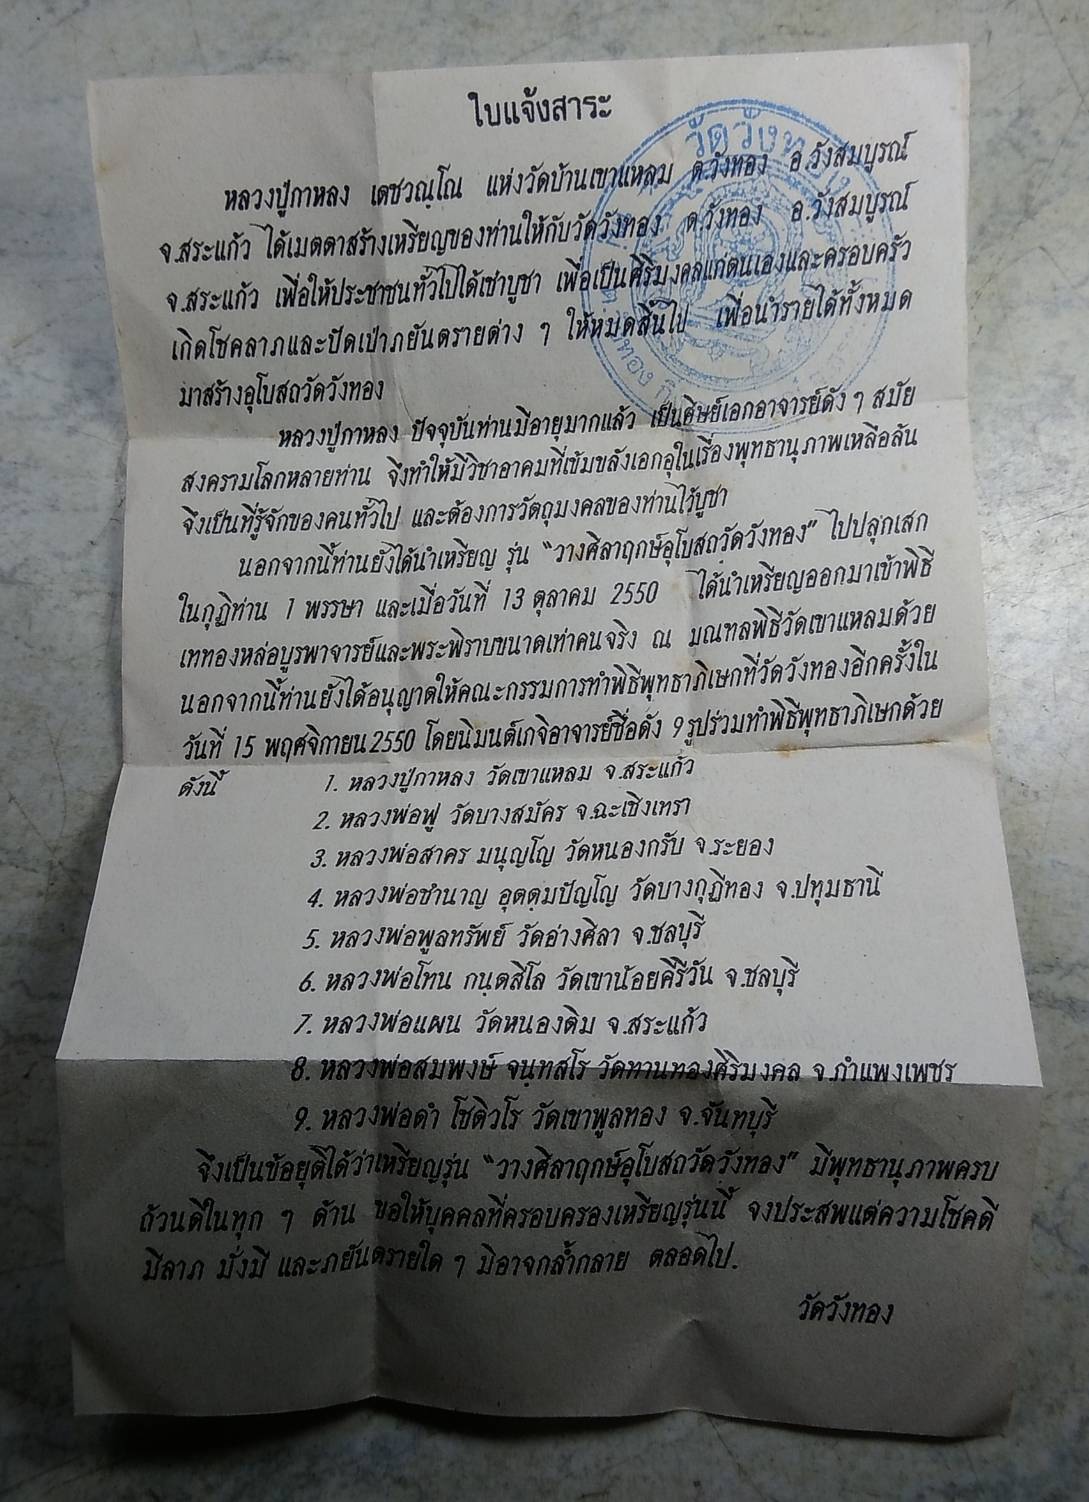 ใบแจ้งสาระ
วัดวังทอง
หลวงปู่กาหลง เตชวณฺโณ แห่งวัดบ้านเขาแหลม ต.วังทอง อ.วังสมบูรณ์
จ.สระแก้ว ได้เมตตาสร้างเหรียญของท่านให้กับวัดวังทอง ต.วังทอง อ.วังสมบูรณ์
จ.สระแก้ว เพื่อให้ประชาชนทั่วไปได้เช่าบูชา เพื่อเป็นศิริมงคลแก่ตนเองและครอบครัว
เกิดโชคลาภและปัดเป่าภยันตรายต่าง ๆ ให้หมดสิ้นไป เพื่อนำรายได้ทั้งหมด
มาสร้างอุโบสถวัดวังทอง
หลวงปู่กาหลง ปัจจุบันท่านมีอายุมากแล้ว เป็นศิษย์เอกอาจารย์ดัง ๆ สมัย
สงครามโลกหลายท่าน จึงทำให้มีวิชาอาคมที่เข้มขลังเอกอุในเรื่องพุทธานุภาพเหลือล้น
จึงเป็นที่รู้จักของคนทั่วไป และต้องการวัตถุมงคลของท่านไว้บูชา
นอกจากนี้ท่านยังได้นำเหรียญ รุ่น "วางศิลาฤกษ์อุโบสถวัดวังทอง" ไปปลุกเสก
ในกุฏิท่าน 1 พรรษา และเมื่อวันที่ 13 ตุลาคม 2550 ได้นำเหรียญออกมาเข้าพิธี
เททองหล่อบูรพาจารย์และพระพิราบขนาดเท่าคนจริง ณ มณฑลพิธีวัดเขาแหลมด้วย
นอกจากนี้ท่านยังได้อนุญาตให้คณะกรรมการทำพิธีพุทธาภิเษกที่วัดวังทองอีกครั้งใน
วันที่ 15 พฤศจิกายน 2550 โดยนิมนต์เกจิอาจารย์ชื่อดัง 9 รูปร่วมทำพิธีพุทธาภิเษกด้วย
ดังนี้ 1. หลวงปู่กาหลง วัดเขาแหลม จ.สระแก้ว
2. หลวงพ่อฟู วัดบางสมัคร จ.ฉะเชิงเทรา
3. หลวงพ่อสาคร มนุญฺโญ วัดหนองกรับ จ.ระยอง
4. หลวงพ่อชำนาญ อุตฺตมปัญโญ วัดบางกุฎีทอง จ.ปทุมธานี
5. หลวงพ่อพูลทรัพย์ วัดอ่างศิลา จ.ชลบุรี
6. หลวงพ่อโทน กนฺตสีโล วัดเขาน้อยคีรีวัน จ.ชลบุรี
7. หลวงพ่อแผน วัดหนองติม จ.สระแก้ว
8. หลวงพ่อสมพงษ์ จนฺทสโร วัดทานทองศิริมงคล จ.กำแพงเพชร
9. หลวงพ่อดำ โชติวโร วัดเขาพูลทอง จ.จันทบุรี
จึงเป็นข้อยุติได้ว่าเหรียญรุ่น "วางศิลาฤกษ์อุโบสถวัดวังทอง" มีพุทธานุภาพครบ
ถ้วนดีในทุก ๆ ด้าน ขอให้บุคคลที่ครอบครองเหรียญรุ่นนี้ จงประสพแต่ความโชคดี
มีลาภ มั่งมี และภยันตรายใด ๆ มิอาจกล้ำกลาย ตลอดไป.
วัดวังทอง